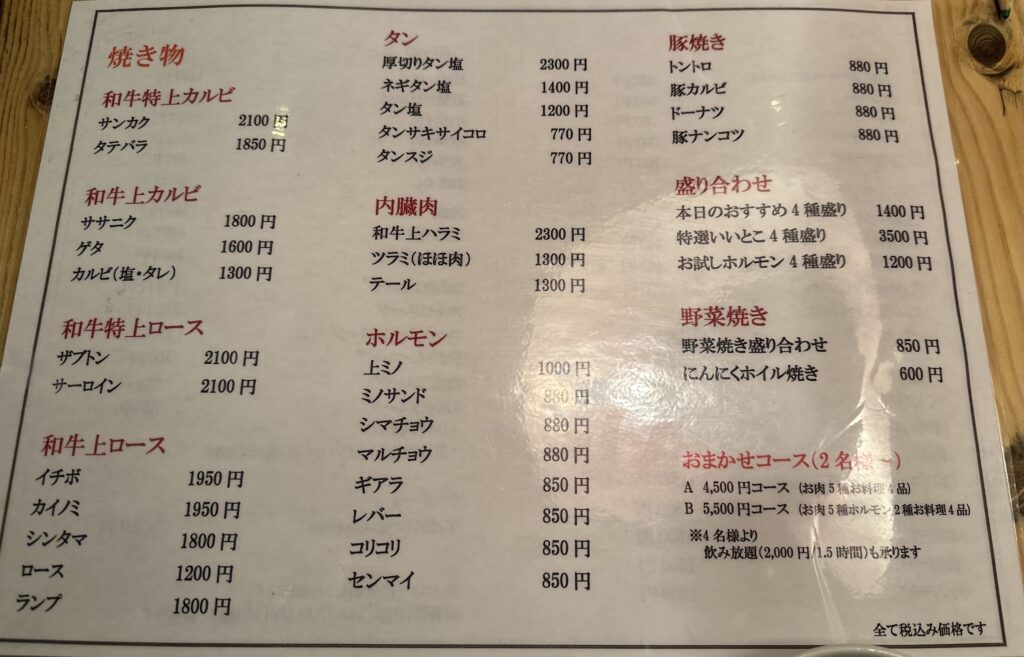 焼き物
和牛特上カルビ
サンカク 2100円
タテバラ 1850円
和牛上カルビ
ササニク 1800円
ゲタ 1600円
カルビ（塩・タレ） 1300円
和牛特上ロース
ザブトン 2100円
サーロイン 2100円
和牛上ロース
イチボ 1950円
カイノミ 1950円
シンタマ 1800円
ロース 1200円
ランプ 1800円
タン
厚切りタン塩 2300円
ネギタン塩 1400円
タン塩 1200円
タンサキサイコロ 770円
タンスジ 770円
内臓肉
和牛上ハラミ 2300円
ツラミ（ほほ肉） 1300円
テール 1300円
ホルモン
上ミノ 1000円
ミノサンド 880円
シマチョウ 880円
マルチョウ 880円
ギアラ 850円
レバー 850円
コリコリ 850円
センマイ 850円
豚焼き
トントロ 880円
豚カルビ 880円
ドーナツ 880円
豚ナンコツ 880円
盛り合わせ
本日のおすすめ4種盛り 1400円
特選いいとこ4種盛り 3500円
お試しホルモン4種盛り 1200円
野菜焼き
野菜焼き盛り合わせ 850円
にんにくホイル焼き 600円
おまかせコース（2名様～）
A 4,500円コース（お肉5種お料理4品）
B 5,500円コース（お肉5種ホルモン2種お料理4品）
※4名様より
飲み放題（2,000円/1.5時間）も承ります
全て税込み価格です